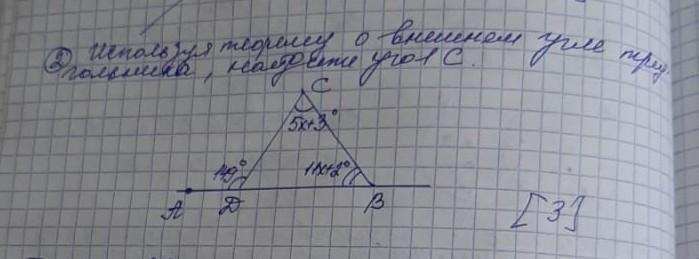 ② Используя теорему о внешнем угле треу
гольника, найдите угол C.
C
5x+3°
149° 11x+2°
A D B
[3]